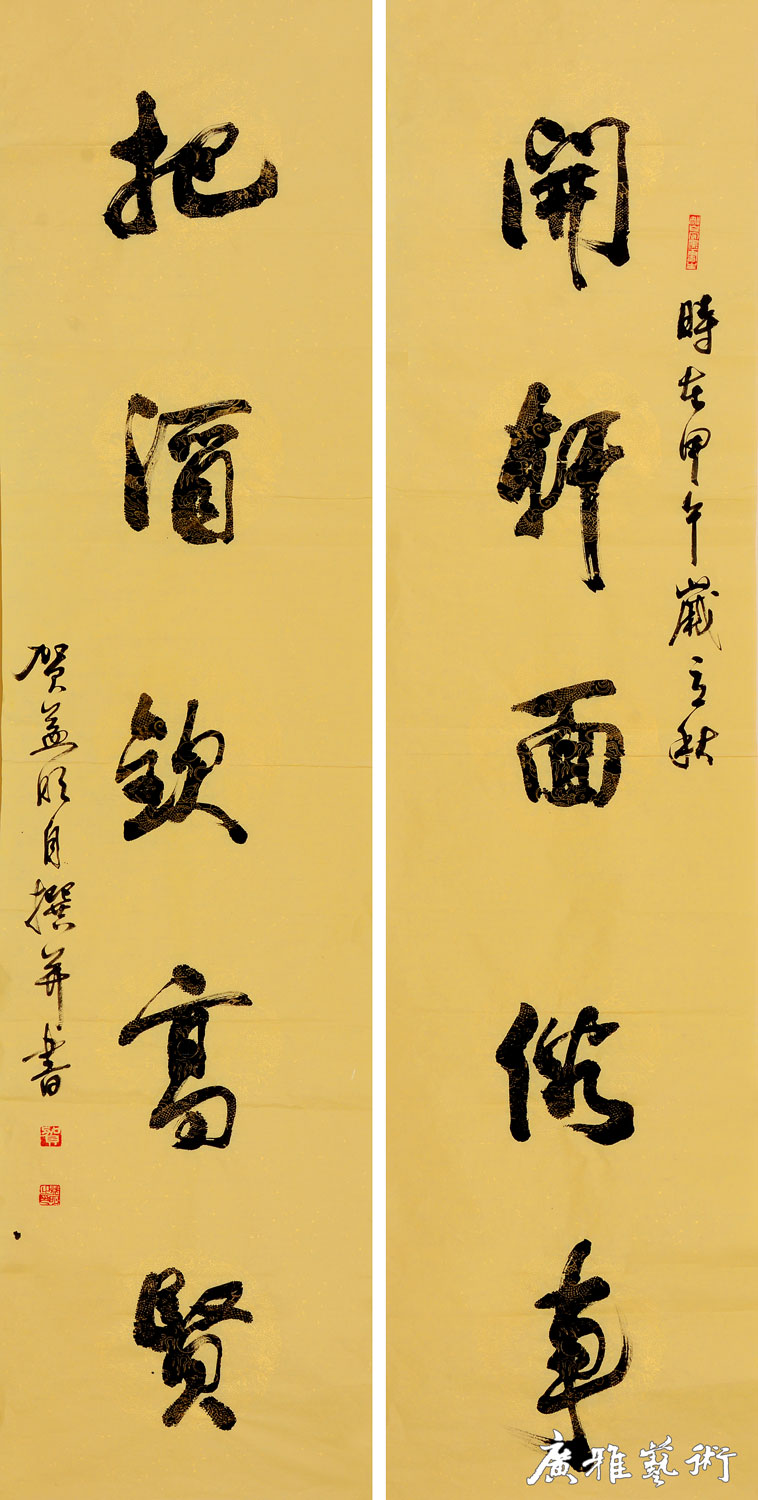 時在甲午歲立秋
開軒面
把酒欽高賢
贺益明自撰并書
廣雅藝術